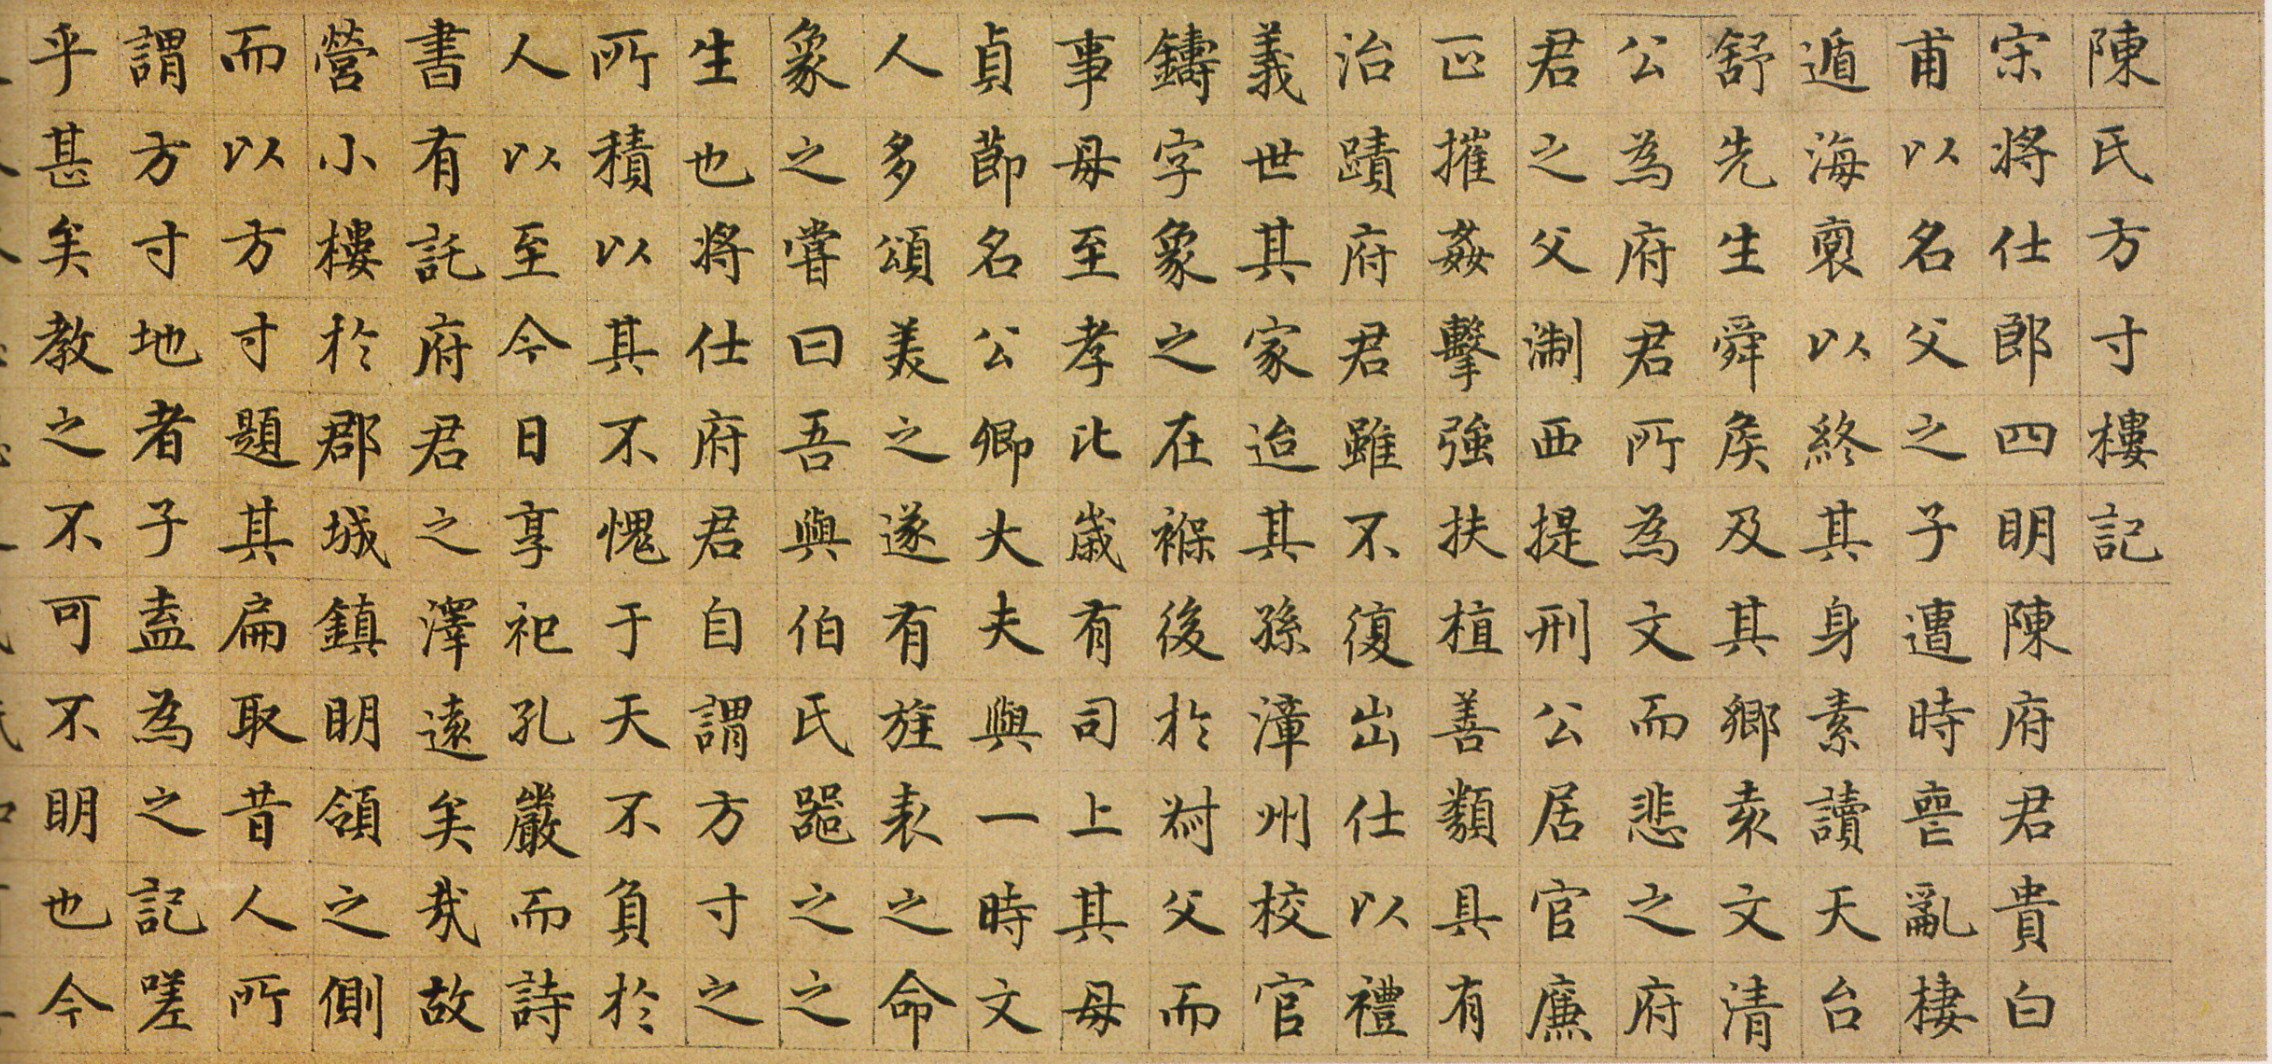 陳氏方寸樓記
宋將仕郎四明陳府君貴白
甫以名父之子遭時喪亂棲
遁海裏以終其身素讀天台
舒先生舜矦及其鄉袁文清
公為府君所為文而悲之府
君之父淛西提刑公居官廉
正摧姦擊強扶植善類具有
治蹟府君雖不復出仕以禮
義世其家迨其孫漳州校官
鑄字象之在褓後於對父而
事母至孝比歲有司上其母
貞節名公卿大夫與一時文
人多頌美之遂有旌表之命
象之嘗曰吾與伯氏噩之之
生也將仕府君自謂方寸之
所積以其不愧于天不負於
人以至今日享祀孔嚴而詩
書有託府君之澤遠矣哉故
營小樓於郡城鎮明領之側
而以方寸題其扁取昔人所
謂方寸地者子盍為之記嗟
乎甚矣教之不可不明也今